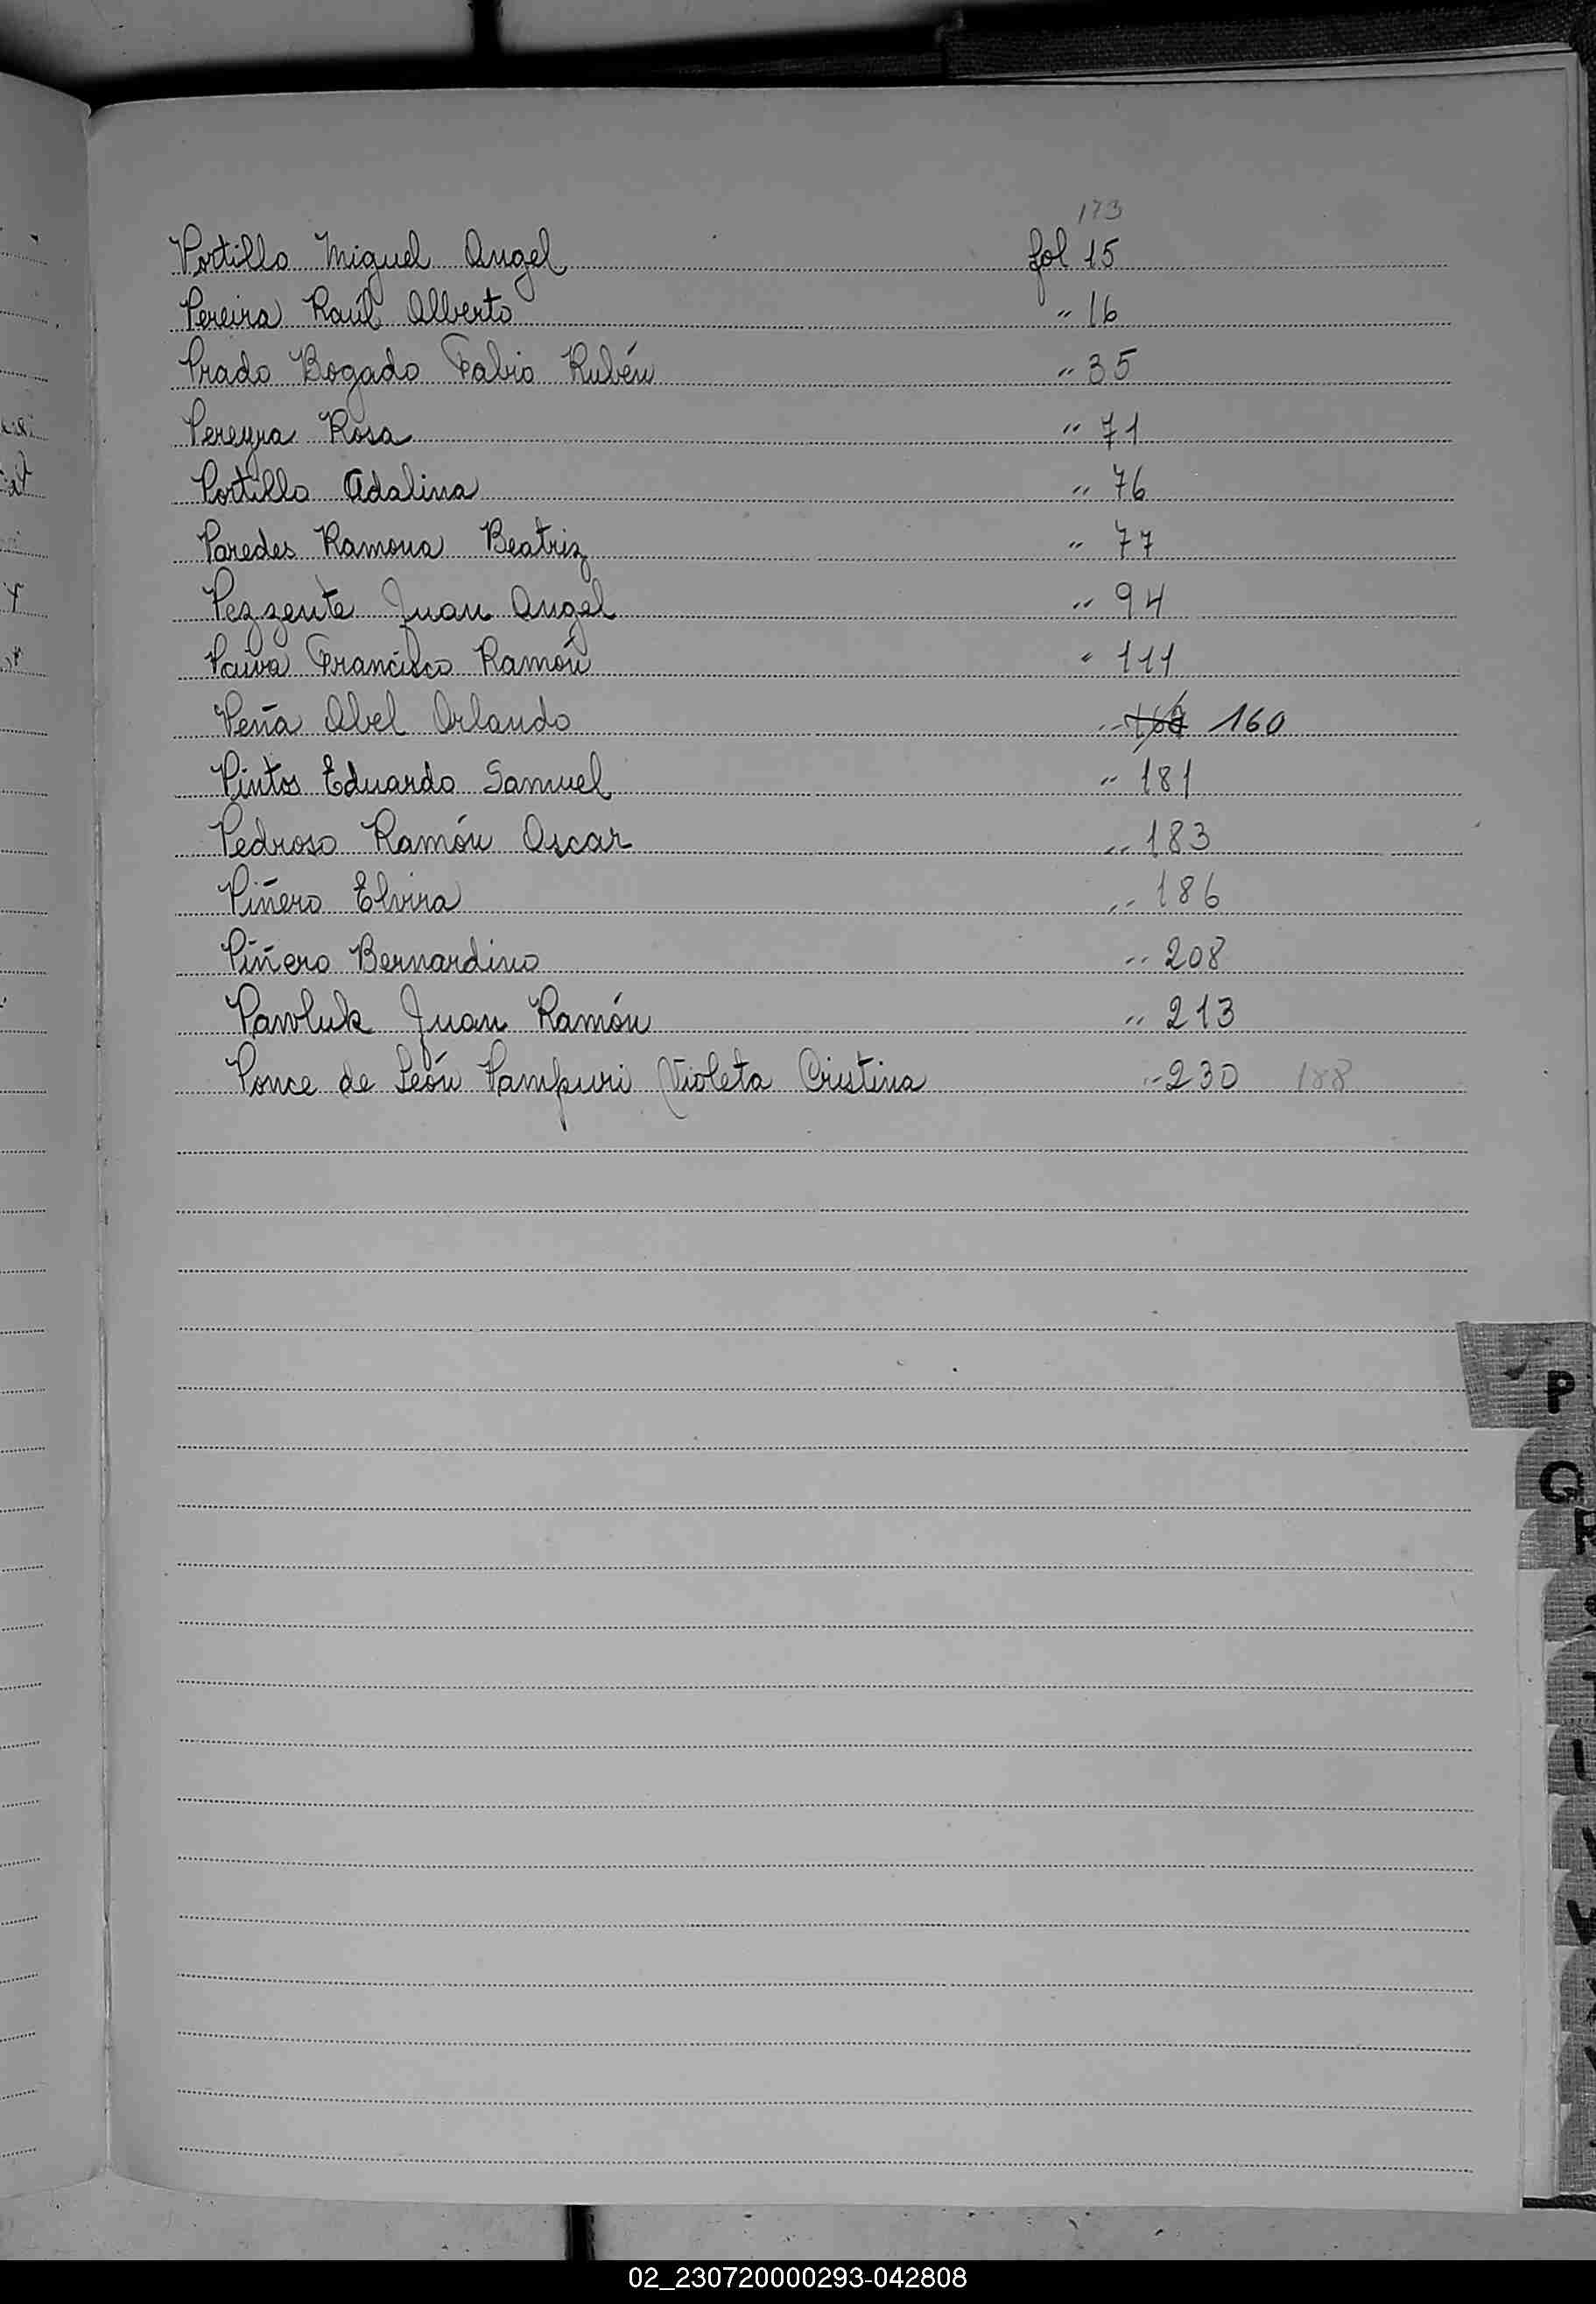 173
Portillo Miguel Angel fol 15
Pereira Raúl Alberto " 16
Prado Bogado Fabio Rubén " 35
Pereyra Rosa " 71
Portillo Adalina " 76
Paredes Ramona Beatriz " 77
Pezzente Juan Angel " 94
Paiva Francisco Ramón " 111
Peña Abel Orlando " 160
Pintos Eduardo Samuel " 181
Pedroso Ramón Oscar " 183
Piñero Elvira " 186
Piñero Bernardino " 208
Pawluk Juan Ramón " 213
Ponce de León Pampuri Violeta Cristina " 230 188
P
Q
R
02_230720000293-042808